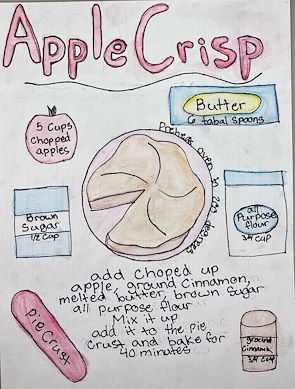 Apple Crisp
Butter
6 tabal spoons
5 Cups
Chopped
apples
Preheat oven to degrees
Brown
Sugar
1/2 cup
all
Purpose
flour
3/4 cup
add choped up
apple, ground Cinnamon,
melted butter, brown sugar
all purpose flour
Mix it up
add it to the pie
Crust and bake for
40 minutes
pie Crust
ground
Cinnamon
3/4 cup